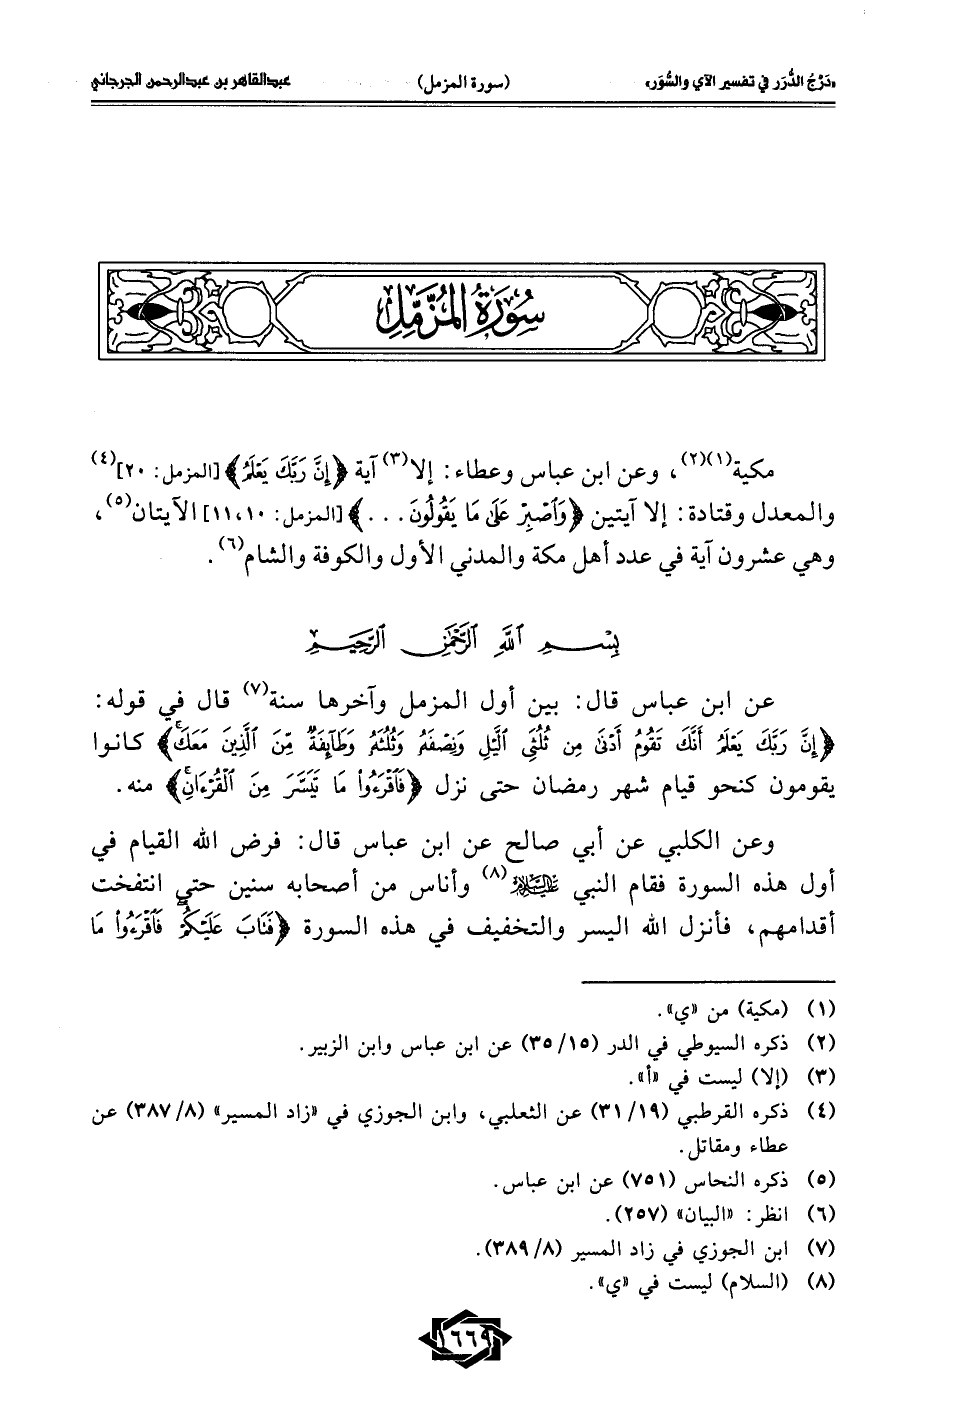 «دَرْجُ الدُّرَر في تفسير الآي والسُّوَر» (سورة المزمل) عبدالقاهر بن عبدالرحمن الجرجاني
سُورَةُ المُزَّمِّلِ
مكية(١)(٢)، وعن ابن عباس وعطاء: إلا(٣) آية ﴿إِنَّ رَبَّكَ يَعْلَمُ﴾ [المزمل: ٢٠](٤)
والمعدل وقتادة: إلا آيتين ﴿وَٱصۡبِرۡ عَلَىٰ مَا يَقُولُونَ...﴾ [المزمل: ١٠،١١] الآيتان(٥)،
وهي عشرون آية في عدد أهل مكة والمدني الأول والكوفة والشام(٦).
بِسۡمِ ٱللَّهِ ٱلرَّحۡمَٰنِ ٱلرَّحِيمِ
عن ابن عباس قال: بين أول المزمل وآخرها سنة(٧) قال في قوله:
﴿إِنَّ رَبَّكَ يَعۡلَمُ أَنَّكَ تَقُومُ أَدۡنَىٰ مِن ثُلُثَيِ ٱلَّيۡلِ وَنِصۡفَهُۥ وَثُلُثَهُۥ وَطَآئِفَةٞ مِّنَ ٱلَّذِينَ مَعَكَۚ﴾ كانوا
يقومون كنحو قيام شهر رمضان حتى نزل ﴿فَٱقۡرَءُواْ مَا تَيَسَّرَ مِنَ ٱلۡقُرۡءَانِۚ﴾ منه.
وعن الكلبي عن أبي صالح عن ابن عباس قال: فرض الله القيام في
أول هذه السورة فقام النبي عليه السلام(٨) وأناس من أصحابه سنين حتى انتفخت
أقدامهم، فأنزل الله اليسر والتخفيف في هذه السورة ﴿فَتَابَ عَلَيۡكُمۡۖ فَٱقۡرَءُواْ مَا
(١) (مكية) من «ي».
(٢) ذكره السيوطي في الدر (٣٥/١٥) عن ابن عباس وابن الزبير.
(٣) (إلا) ليست في «أ».
(٤) ذكره القرطبي (٣١/١٩) عن الثعلبي، وابن الجوزي في «زاد المسير» (٣٨٧/٨) عن
عطاء ومقاتل.
(٥) ذكره النحاس (٧٥١) عن ابن عباس.
(٦) انظر: «البيان» (٢٥٧).
(٧) ابن الجوزي في زاد المسير (٣٨٩/٨).
(٨) (السلام) ليست في «ي».
١٦٦٩